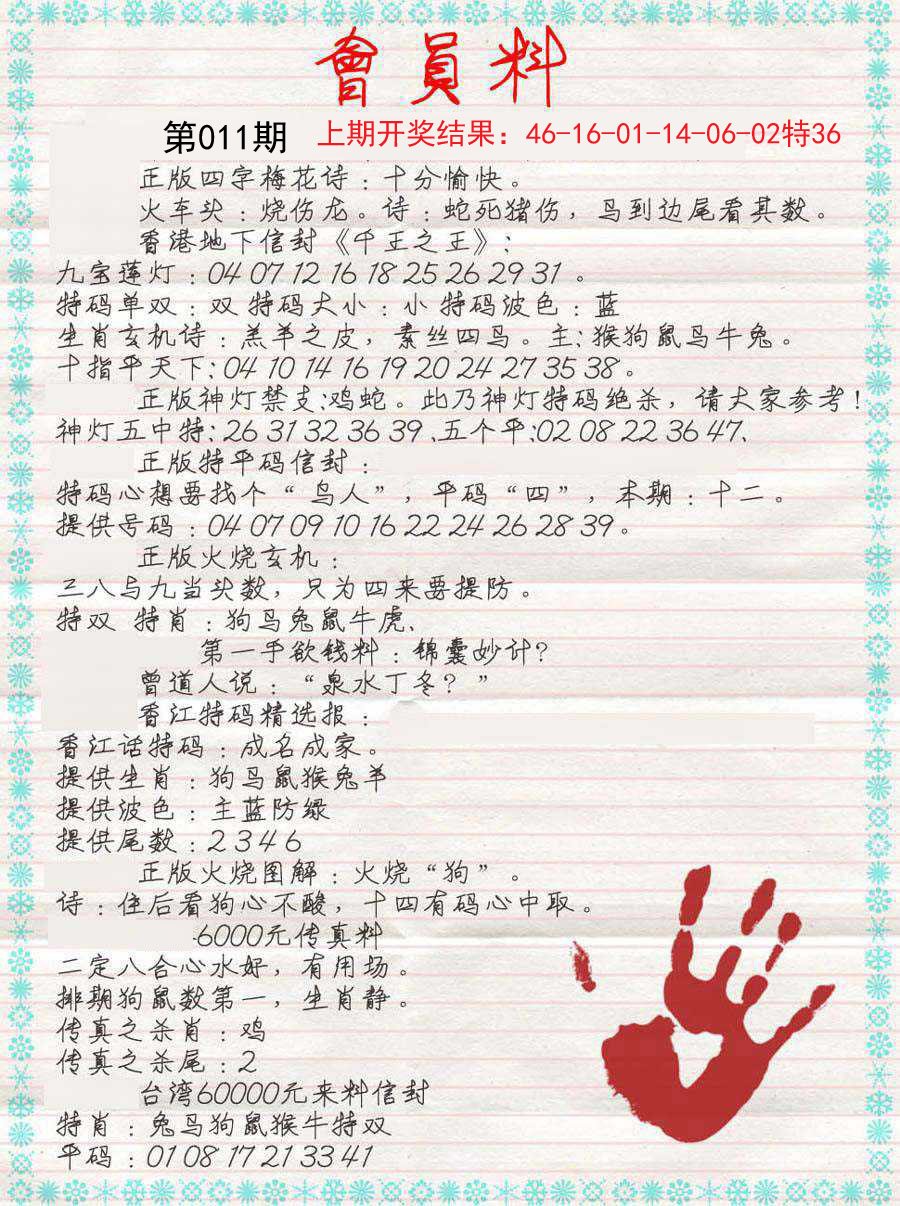 會員料
第011期 上期开奖结果：46-16-01-14-06-02特36
正版四字梅花诗：十分愉快。
火车头：烧伤龙。诗：蛇死猪伤，鸟到边尾看其数。
香港地下信封《千王之王》：
九宝莲灯：04 07 12 16 18 25 26 29 31 。
特码单双：双 特码大小：小 特码波色：蓝
生肖玄机诗：羔羊之皮，素丝四鸟。主：猴狗鼠鸟牛兔。
十指平天下：04 10 14 16 19 20 24 27 35 38。
正版神灯禁支：鸡蛇。此乃神灯特码绝杀，请大家参考！
神灯五中特：26 31 32 36 39 、五个平：02 08 22 36 47、
正版特平码信封：
特码心想要找个“鸟人”，平码“四”，本期：十二。
提供号码：04 07 09 10 16 22 24 26 28 39。
正版火烧玄机：
三八与九当头数，只为四来要提防。
特双 特肖：狗鸟兔鼠牛虎、
第一手欲钱料：锦囊妙计？
曾道人说：“泉水丁冬？”
香江特码精选报：
香江话特码：成名成家。
提供生肖：狗鸟鼠猴兔羊
提供波色：主蓝防绿
提供尾数：2 3 4 6
正版火烧图解：火烧“狗”。
诗：住后看狗心不酸，十四有码心中取。
6000元传真料
二定八合心水好，有用场。
排期狗鼠数第一，生肖静。
传真之杀肖：鸡
传真之杀尾：2
台湾60000元来料信封
特肖：兔鸟狗鼠猴牛特双
平码：01 08 17 21 33 41